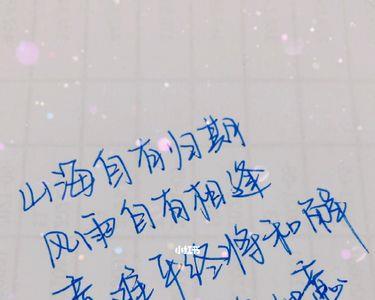 山海自有归期
风雨自有相逢
小红书
意难平终将和解
如意